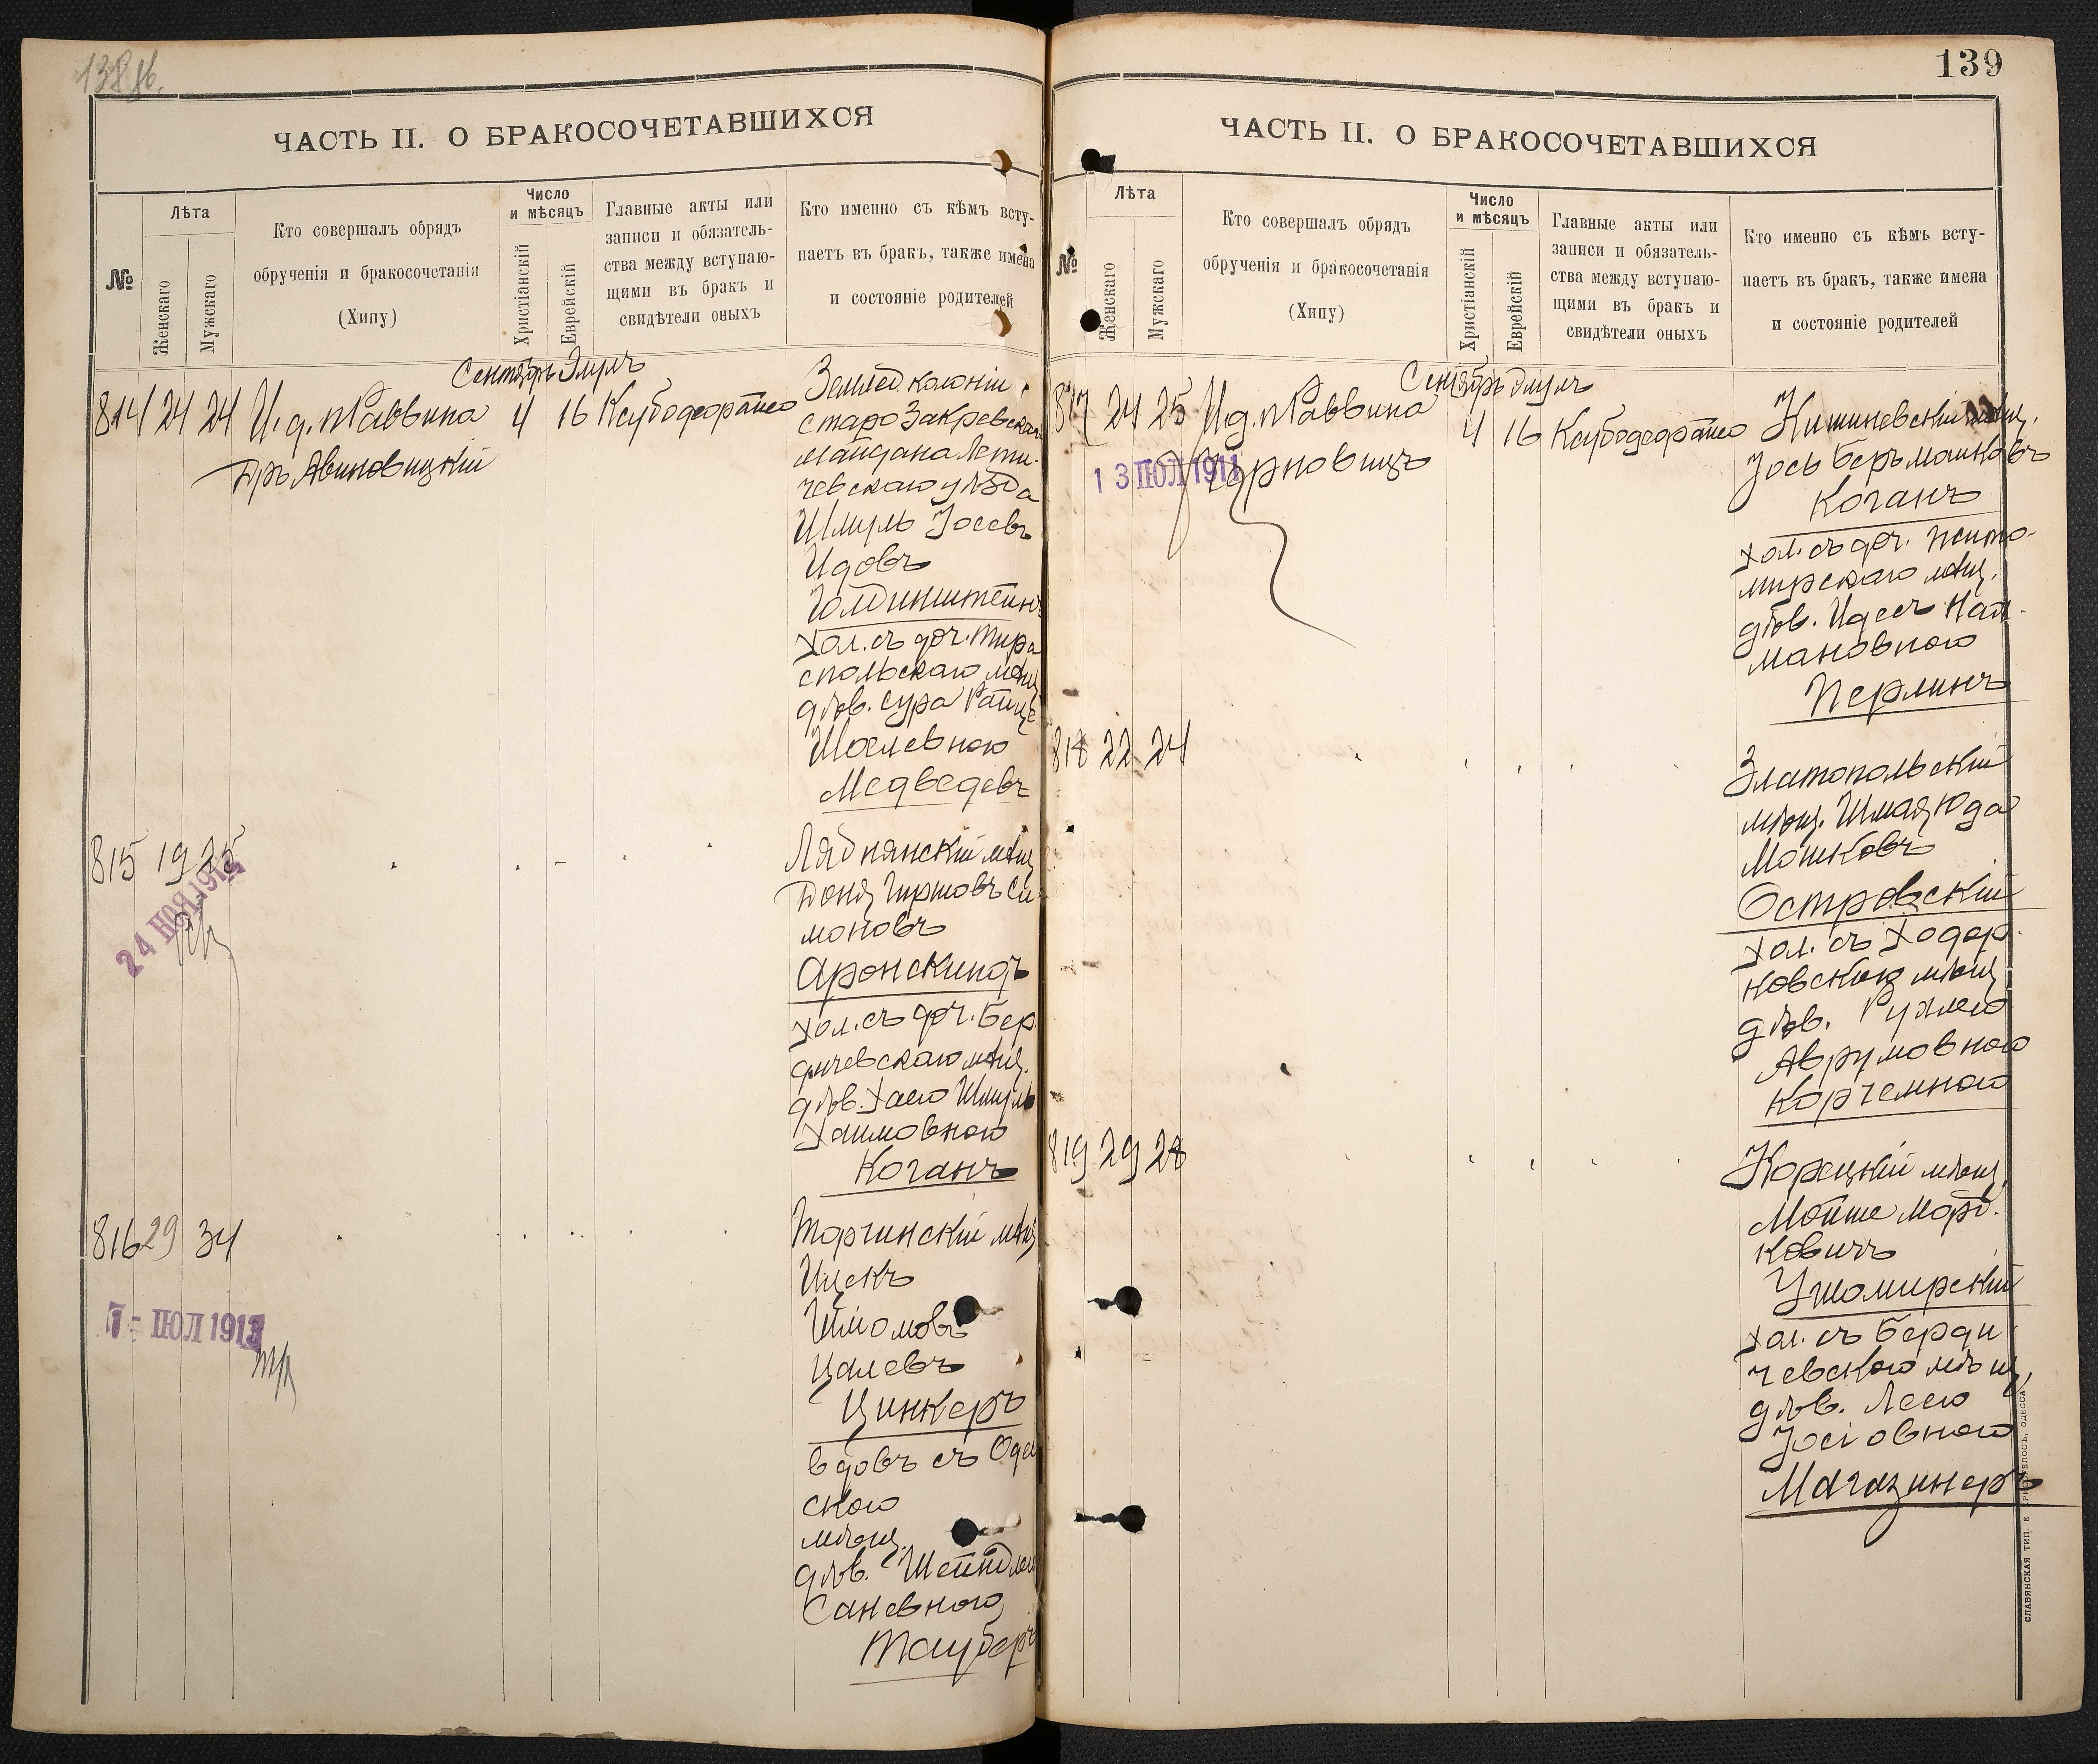 138 об.
ЧАСТЬ II. О БРАКОСОЧЕТАВШИХСЯ
№
Лѣта
Женскаго
Мужскаго
Кто совершалъ обрядъ
обрученія и бракосочетанія
(Хипу)
Число
и мѣсяцъ
Христіанскій
Еврейскій
Главные акты или
записи и обязатель-
ства между вступаю-
щими въ бракъ и
свидѣтели оныхъ
Кто именно съ кѣмъ всту-
паетъ въ бракъ, также имена
и состояніе родителей
Сентябрь Элулъ
814 24 24 И. д. Раввина 4 16
Дръ Авиновицкій
Землед. колоніи
Старо Закревскаго
Майдана Лети-
чевскаго уѣзда
Шмуль Іосевъ
Идовъ
Голдинштейнъ
хол. съ доч. Тира
спольскаго мѣщ
дѣв. Сура
Медведевъ
815 19 25
24 НОЯ 1914
мѣщ
Доня Гершовъ Си-
моновъ
Аронскиндъ
хол. съ доч. Бер
дичевскаго мѣщ.
дѣв. Хаею Шмуль
Хаимовною
Коганъ
816 29 34
7 - ІЮЛ 1913
Торчинскій мѣщ
Ицекъ
Шломовъ
Цалевъ
Цинкеръ
вдовъ съ Одес
скою
мѣщ.
дѣв. Шейндлею
Саневною
Тауберъ
139
ЧАСТЬ II. О БРАКОСОЧЕТАВШИХСЯ
№
Лѣта
Женскаго
Мужскаго
Кто совершалъ обрядъ
обрученія и бракосочетанія
(Хипу)
Число
и мѣсяцъ
Христіанскій
Еврейскій
Главные акты или
записи и обязатель-
ства между вступаю-
щими въ бракъ и
свидѣтели оныхъ
Кто именно съ кѣмъ всту-
паетъ въ бракъ, также имена
и состояніе родителей
Сентябрь Элулъ
817 24 25 И. д. Раввина 4 16
13 ІЮЛ 1911
Кишиневскій мѣщ.
Іось Беръ Машковъ
Коганъ
хол. съ доч. Жито-
мирскаго мѣщ.
дѣв. Идесъ Нах-
мановною
Перлинъ
818 22 24
Златопольскій
мѣщ. Шмая Юда
Мошковъ
Островскій
хол. съ Ходор-
ковскою мѣщ
дѣв. Рухлею
Аврумовною
Корчемною
819 29 28
Корецкій мѣщ.
Мойше Морд-
ковичъ
Ушомирскій
хол. съ Берди
чевскою мѣщ,
дѣв. Леею
Іосіовною
Магазинеръ